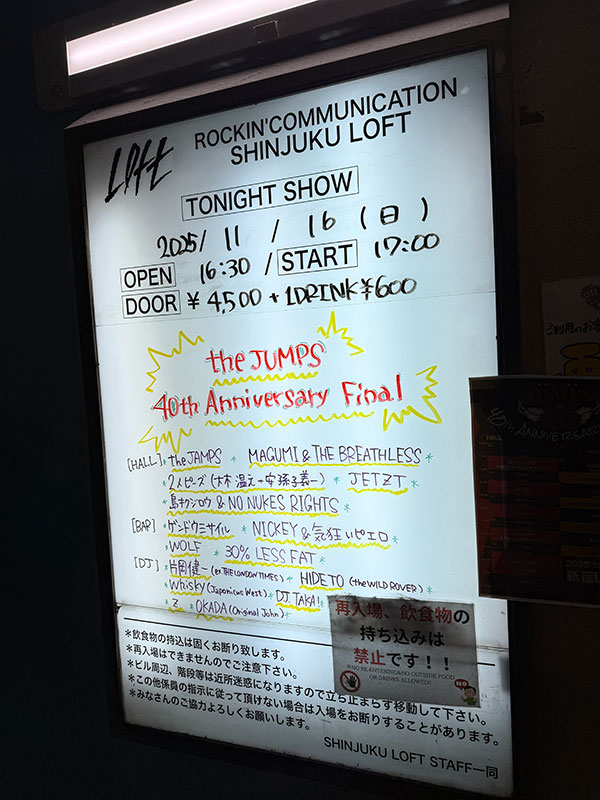 Loft
ROCKIN'COMMUNICATION
SHINJUKU LOFT
TONIGHT SHOW
2025/ 11 / 16 (日)
OPEN 16:30 / START 17:00
DOOR ¥4,500 + 1DRINK ¥600
the JUMPS
40th Anniversary Final
[HALL] * the JAMPS * MAGUMI & THE BREATHLESS *
* 2人ピーズ (大木温之・安孫子義一) * JETZT *
* & NO NUKES RIGHTS *
[BAR] * ゲンドウミサイル * NICKEY & 気狂いピエロ
* WOLF * 30% LESS FAT *
[DJ] * 片岡健一 (ex.THE LONDON TIMES) * HIDETO (the WILD ROVER) *
* Whisky (Japonicus West) * DJ.TAKA!! *
* Z * OKADA (Original John) *
再入場、飲食物の
持ち込みは
禁止です！！
※NO RE-ENTERING&NO OUTSIDE FOOD
OR DRINKS ALLOWED※
NO
*飲食物の持込は固くお断り致します。
*再入場はできませんのでご注意下さい。
*ビル周辺、階段等は近所迷惑になりますので立ち止まらず移動して下さい。
*この他係員の指示に従って頂けない場合は入場をお断りすることがあります。
*みなさんのご協力よろしくお願いします。
SHINJUKU LOFT STAFF一同
ご利用のお客
ANNIVERSARY
HALL
新宿